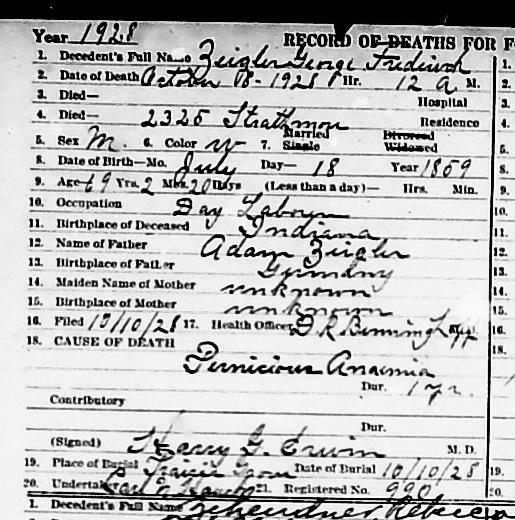 Year 1928 RECORD OF DEATHS FOR F
1. Decedent's Full Name Zeigler George Fredrick 1.
2. Date of Death October 8 - 1928 Hr. 12 A M. 2.
3. Died— Hospital 3.
4. Died— 2325 Strathmon Residence 4.
5. Sex M. 6. Color W 7. Married Single Divorced Widowed 5.
8. Date of Birth—Mo. July Day— 18 Year 1859 8.
9. Age 69 Yrs. 2 Mos. 20 Days (Less than a day)— Hrs. Min. 9.
10. Occupation Day Laborer 10.
11. Birthplace of Deceased Indiana 11.
12. Name of Father Adam Zeigler 12.
13. Birthplace of Father Germany 13.
14. Maiden Name of Mother unknown 14.
15. Birthplace of Mother unknown 15.
16. Filed 10/28 17. Health Officer D R Benninghoff 16.
18. CAUSE OF DEATH 18.
Pernicious Anaemia
Dur. 1 yr.
Contributory
Dur.
(Signed) Harry G. Erwin M. D.
19. Place of Burial Prairie Grove Date of Burial 10/10/28 19.
20. Undertaker 21. Registered No. 990 20.
1. Decedent's Full Name Zehendner Rebecca 1.